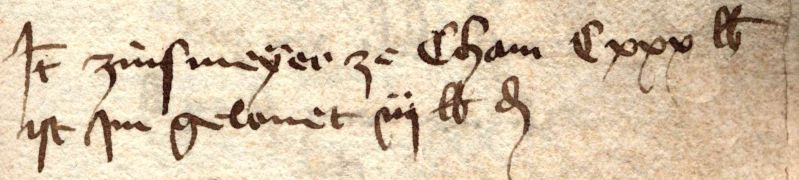 It zinsmeÿer ze Cham Cxxx lb
ist jm gelonet iij lb d